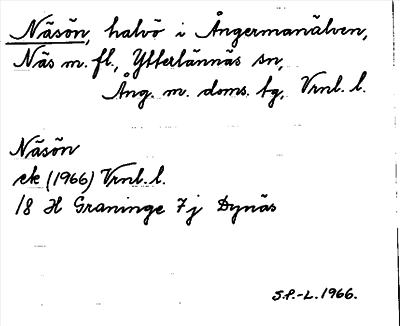 Näsön, halvö i Ångermanälven,
Näs m. fl., Ytterlännäs sn,
Ång. m. doms. tg, Vrnl. l.
Näsön
ek (1966) Vrnl. l.
18 H Graninge 7j Dynäs
S.P.-L. 1966.